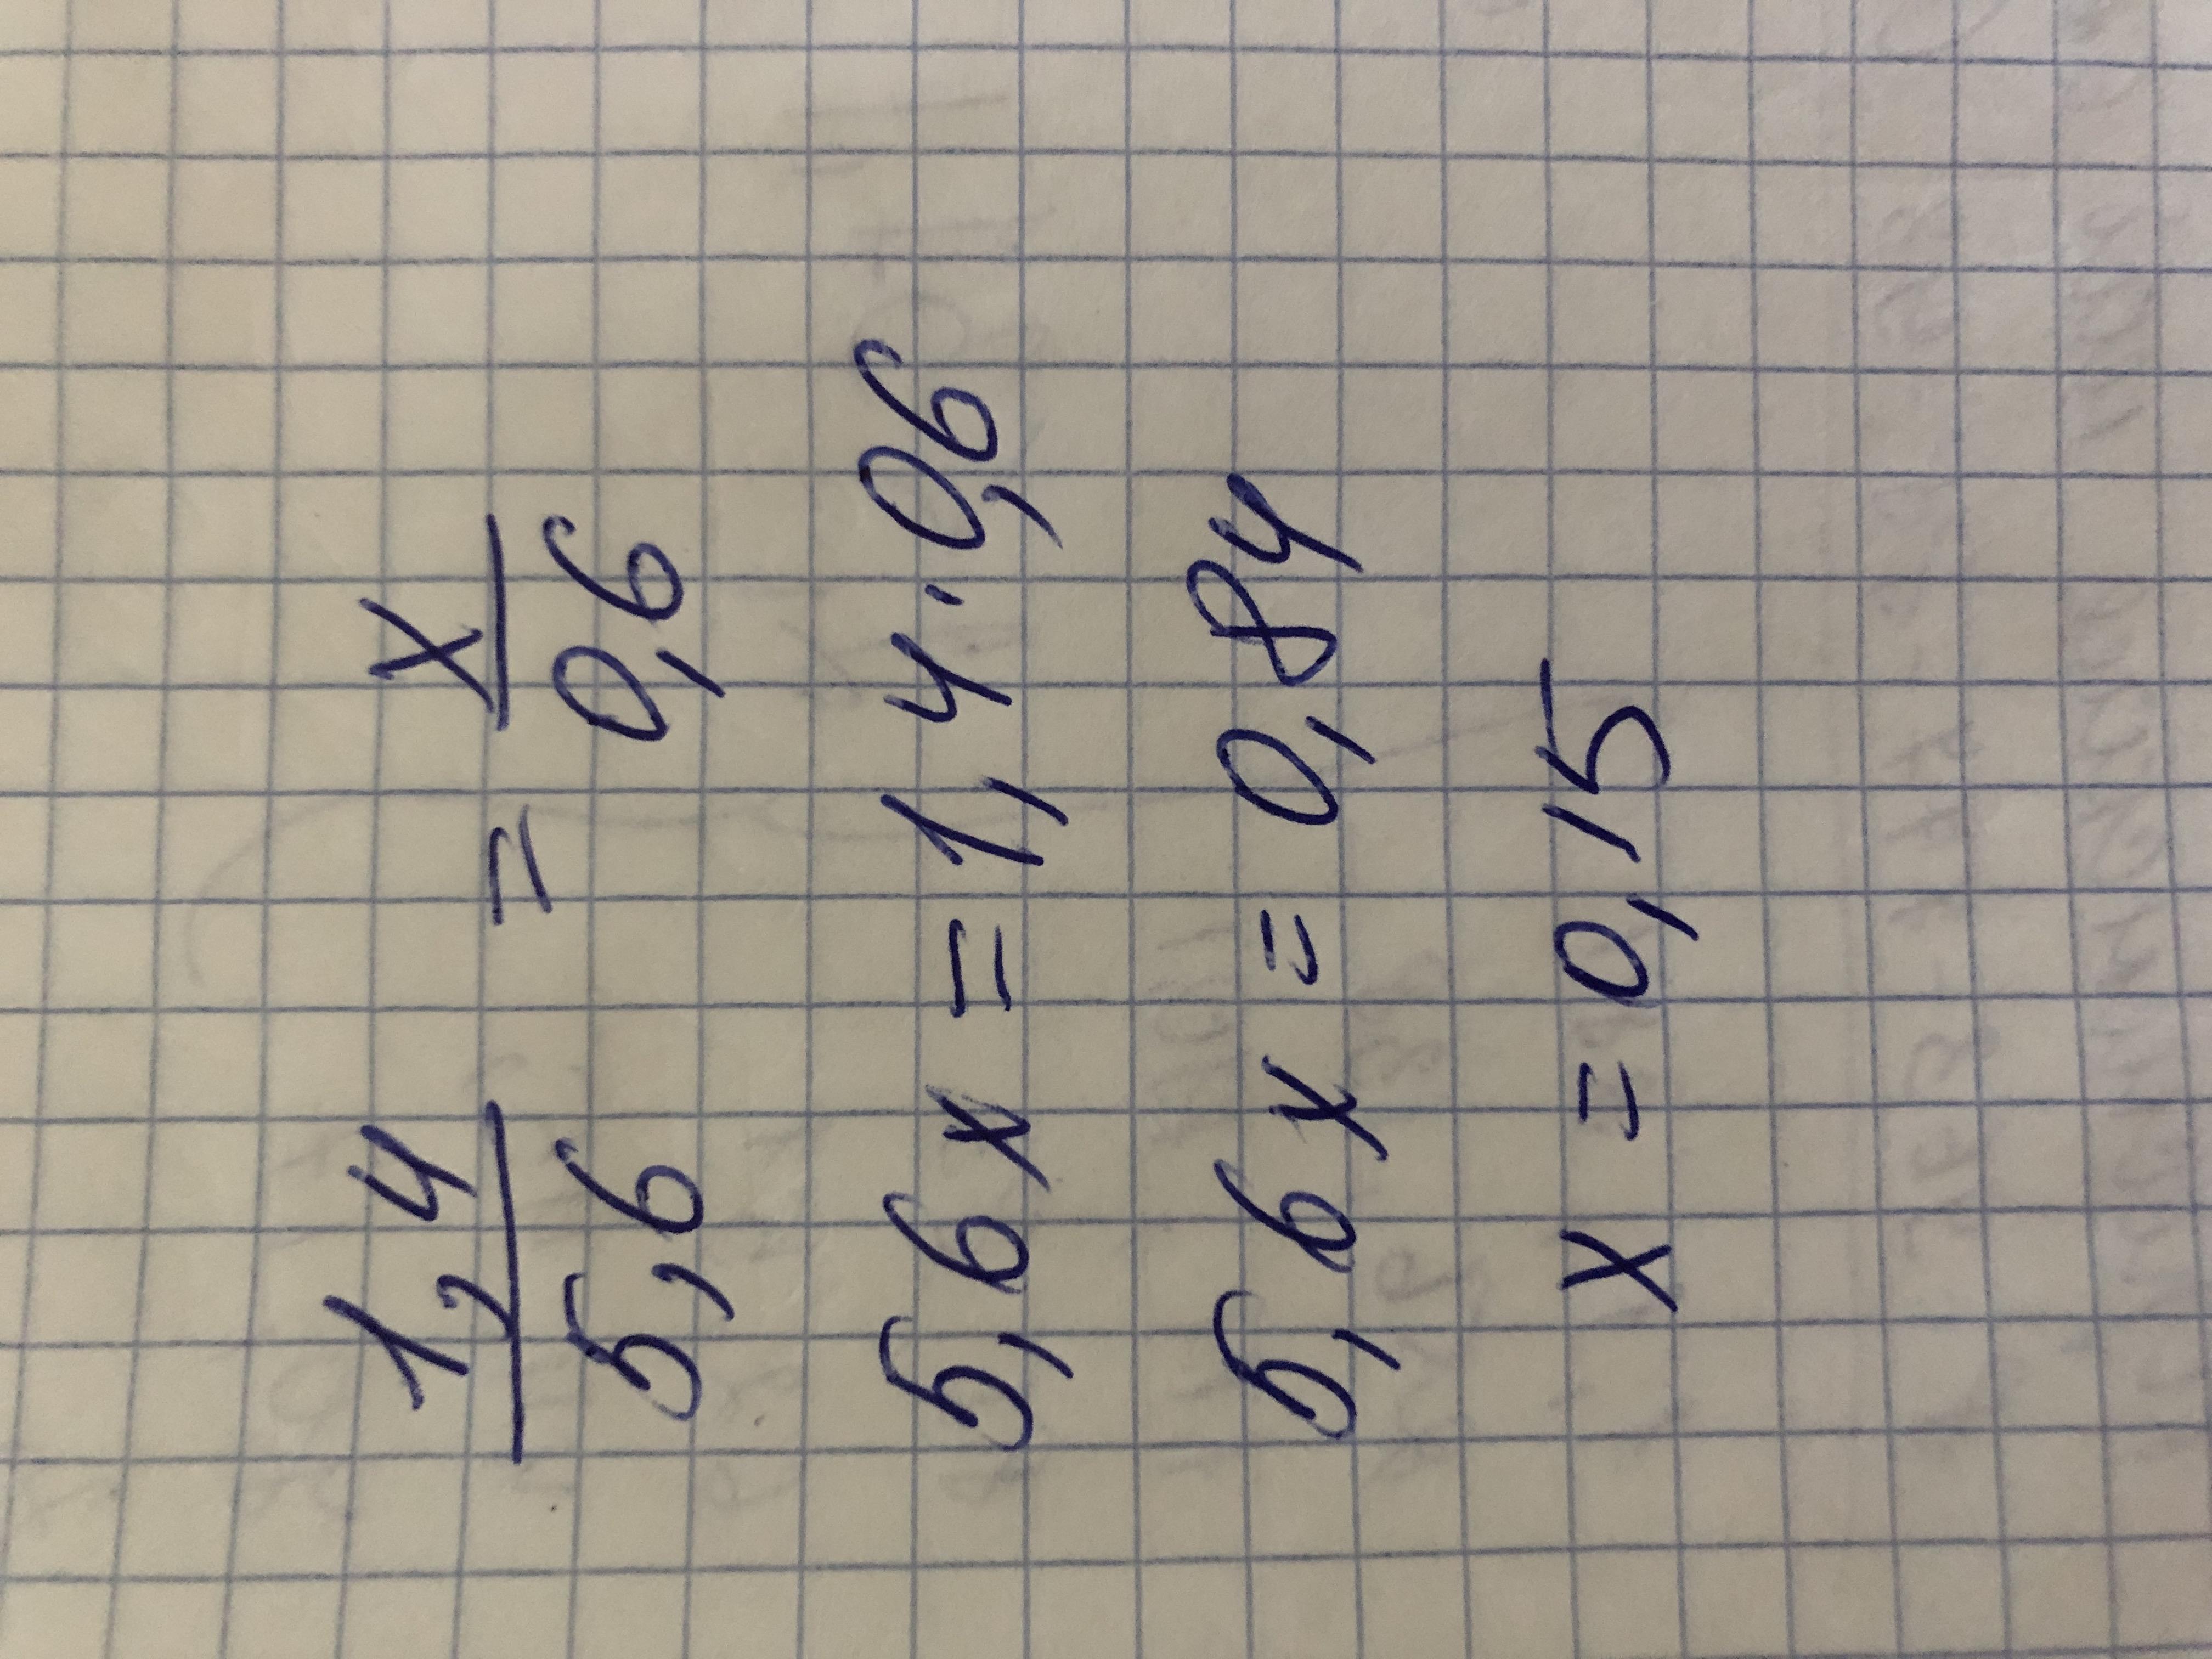 1,4/5,6 = x/0,6
5,6x = 1,4 · 0,6
5,6x = 0,84
x = 0,15